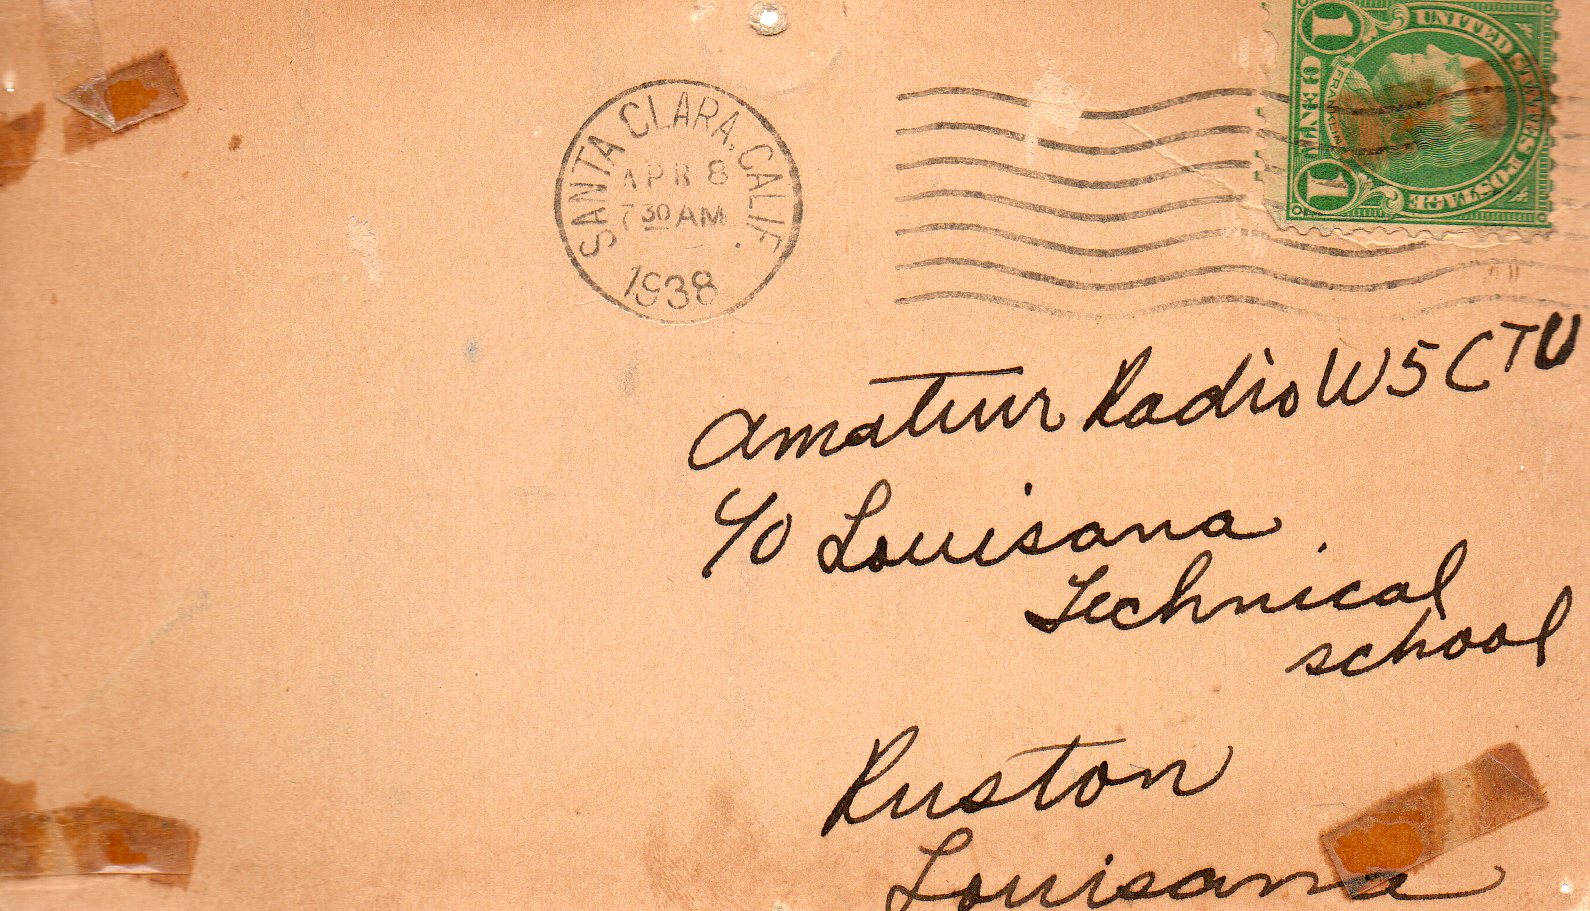 SANTA CLARA, CALIF.
APR 8
7 30 AM
1938
UNITED STATES POSTAGE
FRANKLIN
1 CENT 1
Amateur Radio W5CTU
c/o Louisana
Technical
school
Ruston
Louisana